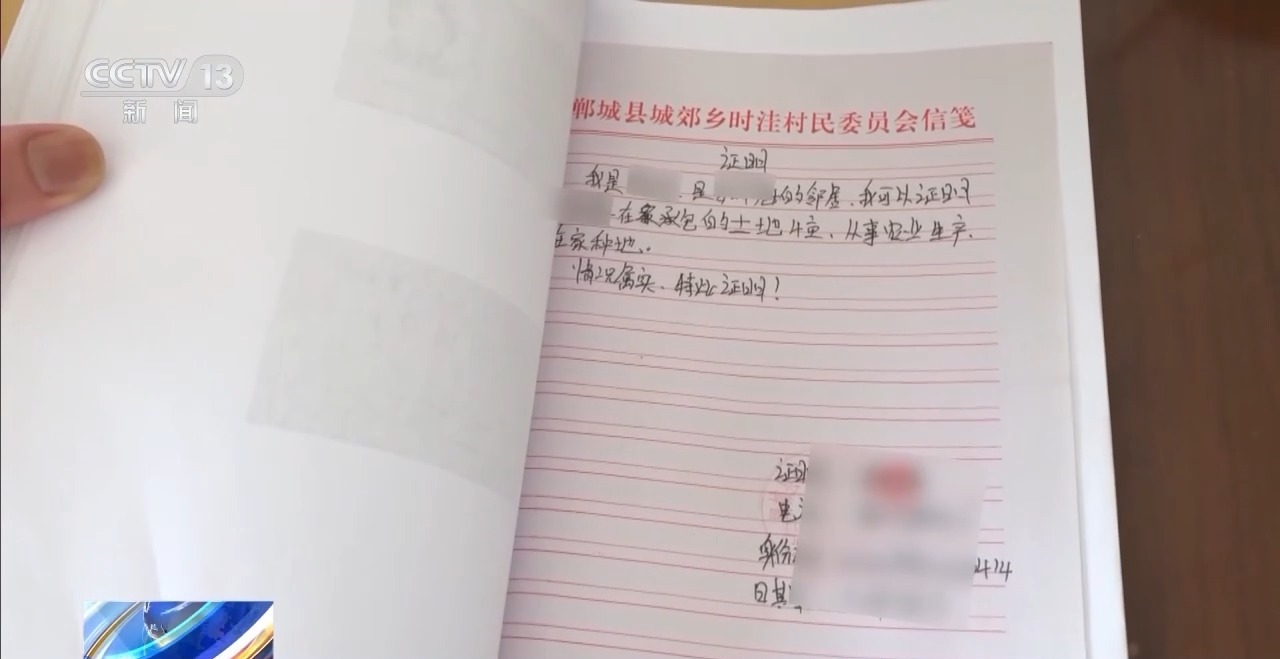 CCTV 13
新闻
郸城县城郊乡时洼村民委员会信笺
证明
我是 是 的邻居、我可以证明
在家承包的土地4亩、从事农业生产、
在家种地。
情况属实、特此证明!
证明
电
身份 0414
日期